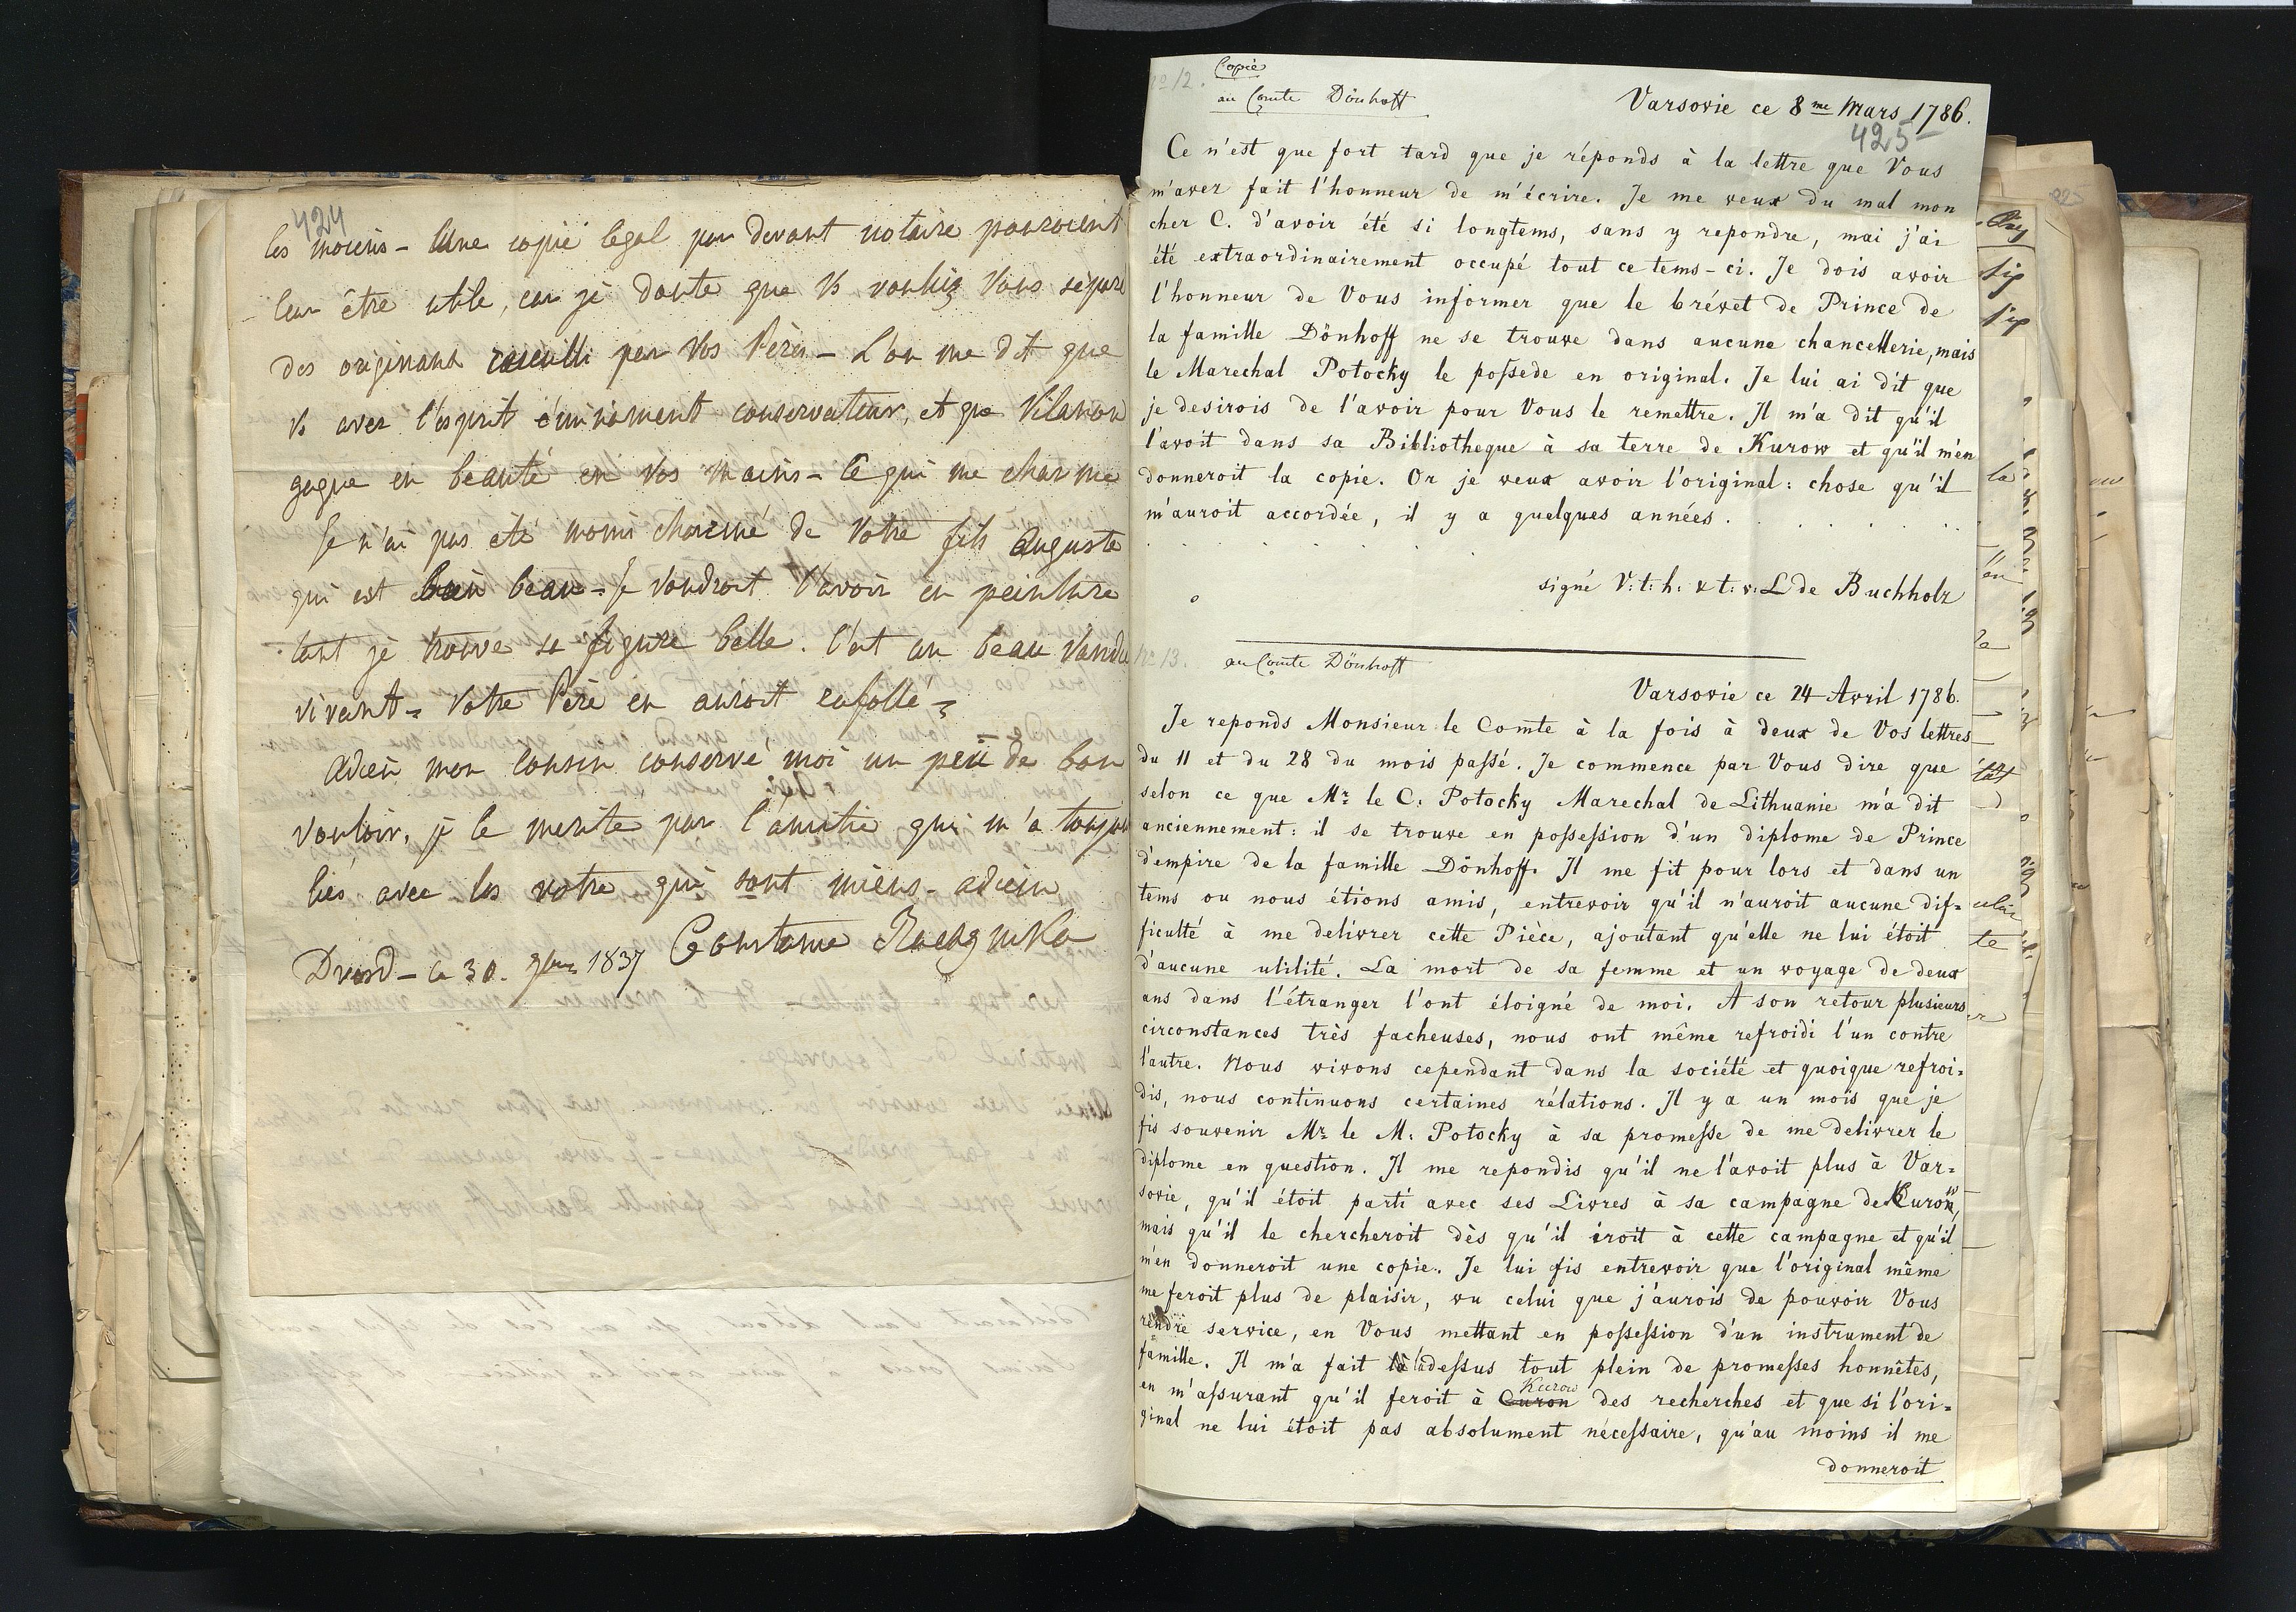 424
les moiens - Une copie legal par devant notaire pouroient
leur être utile, car je doute que Vs vouliez Vous séparé
des originaux receulli par Vos Pères - L'on me dit que
Vs avez l'esprit éminament conservateur, et que Vilanow
gagne en beauté en Vos mains - Ce qui me charme
Je n'ai pas été moins charmé de Votre fils Auguste
qui est bien beau - Je voudroit l'avoir en peinture
tant je trouve sa figure belle. C'est un beau
vivant - Votre Père en auroit raffollé -
Adieu mon Cousin conservé moi un peu de bon
vouloir, je le merite par l'amitié qui m'a toujour
liés avec les votre qui sont miens - adieu
Dresd - ce 30. 9bre 1837 Constance Raczynska
No 12.
Copie
au Comte Dönhoff
Varsovie ce 8me Mars 1786.
425
Ce n'est que fort tard que je réponds à la lettre que Vous
m'avez fait l'honneur de m'écrire. Je me veux du mal mon
cher C. d'avoir été si longtems, sans y repondre, mai j'ai
été extraordinairement occupé tout ce tems-ci. Je dois avoir
l'honneur de Vous informer que le brévet de Prince de
la famille Dönhoff ne se trouve dans aucune chancellerie, mais
le Marechal Potocky le possede en original. Je lui ai dit que
je desirois de l'avoir pour Vous le remettre. Il m'a dit qu'il
l'avoit dans sa Bibliotheque à sa terre de Kurow et qu'il m'en
donneroit la copie. Or je veux avoir l'original: chose qu'il
m'auroit accordée, il y a quelques années. . . . . . .
signé V: t: h: & t: v: L de Buchholz
No 13. au Comte Dönhoff
Varsovie ce 24 Avril 1786.
Je reponds Monsieur le Comte à la fois à deux de Vos lettres
du 11 et du 28 du mois passé. Je commence par Vous dire que
selon ce que Mr le C: Potocky Marechal de Lithuanie m'a dit
anciennement: il se trouve en possession d'un diplome de Prince
d'empire de la famille Dönhoff. Il me fit pour lors et dans un
tems ou nous étions amis, entrevoir qu'il n'auroit aucune dif=
ficulté à me delivrer cette Pièce, ajoutant qu'elle ne lui étoit
d'aucune utilité. La mort de sa femme et un voyage de deux
ans dans l'étranger l'ont éloigné de moi. A son retour plusieurs
circonstances très facheuses, nous ont même refroidi l'un contre
l'autre. Nous vivons cependant dans la société et quoique refroi=
dis, nous continuons certaines rélations. Il y a un mois que je
fis souvenir Mr le M: Potocky à sa promesse de me delivrer le
diplome en question. Il me repondis qu'il ne l'avoit plus à Var=
sovie, qu'il étoit parti avec ses Livres à sa campagne de Kurow,
mais qu'il le chercheroit dès qu'il iroit à cette campagne et qu'il
m'en donneroit une copie. Je lui fis entrevoir que l'original même
me feroit plus de plaisir, vu celui que j'aurois de pouvoir Vous
rendre service, en Vous mettant en possession d'un instrument de
famille. Il m'a fait là dessus tout plein de promesses honnêtes,
en m'assurant qu'il feroit à Curon Kurow des recherches et que si l'ori=
ginal ne lui étoit pas absolument nécessaire, qu'au moins il me
donneroit